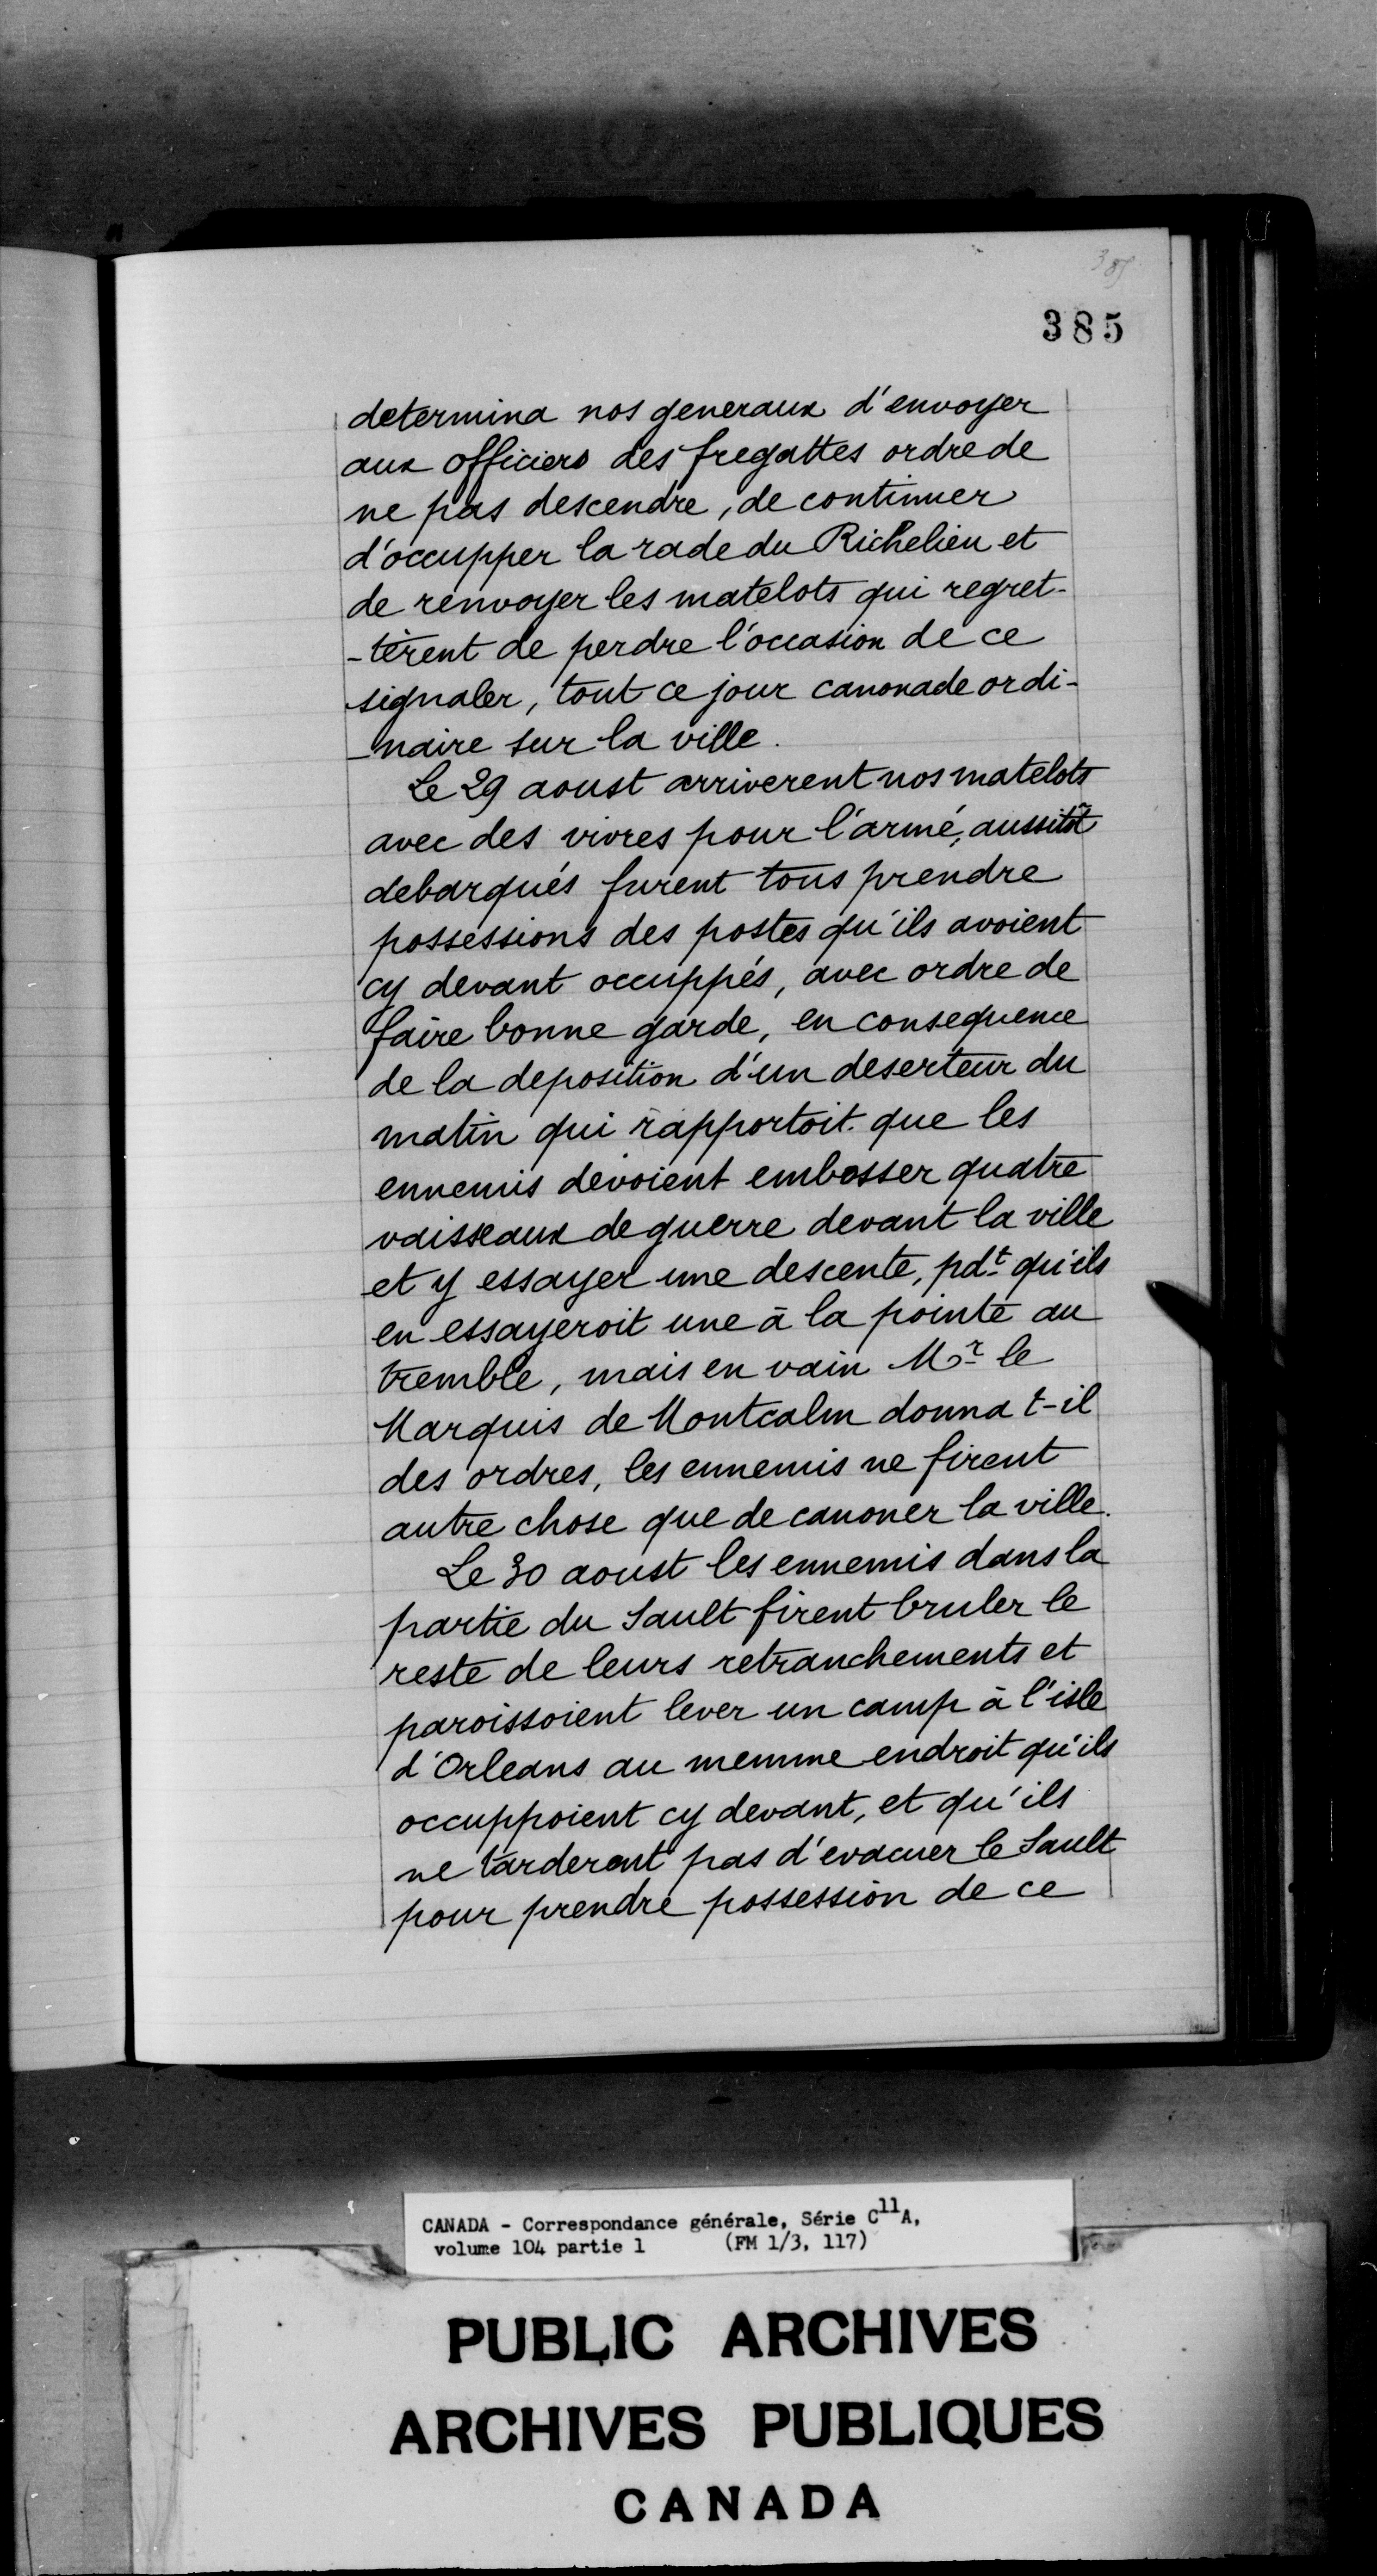 385
385
determina nos generaux d'envoyer
aux officiers des fregattes ordre de
ne pas descendre, de continuer
d'occupper la rade du Richelieu et
de renvoyer les matelots qui regret-
-tèrent de perdre l'occasion de ce
signaler, tout ce jour canonade ordi-
-naire sur la ville.
Le 29 aoust arriverent nos matelots
avec des vivres pour l'armé, aussitôt
debarqués furent tous prendre
possessions des postes qu'ils avoient
cy devant occuppés, avec ordre de
faire bonne garde, en consequence
de la deposition d'un deserteur du
matin qui rapportoit que les
ennemis devoient embosser quatre
vaisseaux de guerre devant la ville
et y essayer une descente, pdt qu'ils
en essayeroit une à la pointe au
tremble, mais en vain Mr le
Marquis de Montcalm donna t-il
des ordres, les ennemis ne firent
autre chose que de canoner la ville.
Le 30 aoust les ennemis dans la
partie du Sault firent bruler le
reste de leurs retranchements et
paroissoient lever un camp à l'isle
d'Orleans au memme endroit qu'ils
occuppoient cy devant, et qu'ils
ne tarderont pas d'evacuer le Sault
pour prendre possession de ce
CANADA - Correspondance générale, Série C11A,
volume 104 partie 1 (FM 1/3, 117)
PUBLIC ARCHIVES
ARCHIVES PUBLIQUES
CANADA